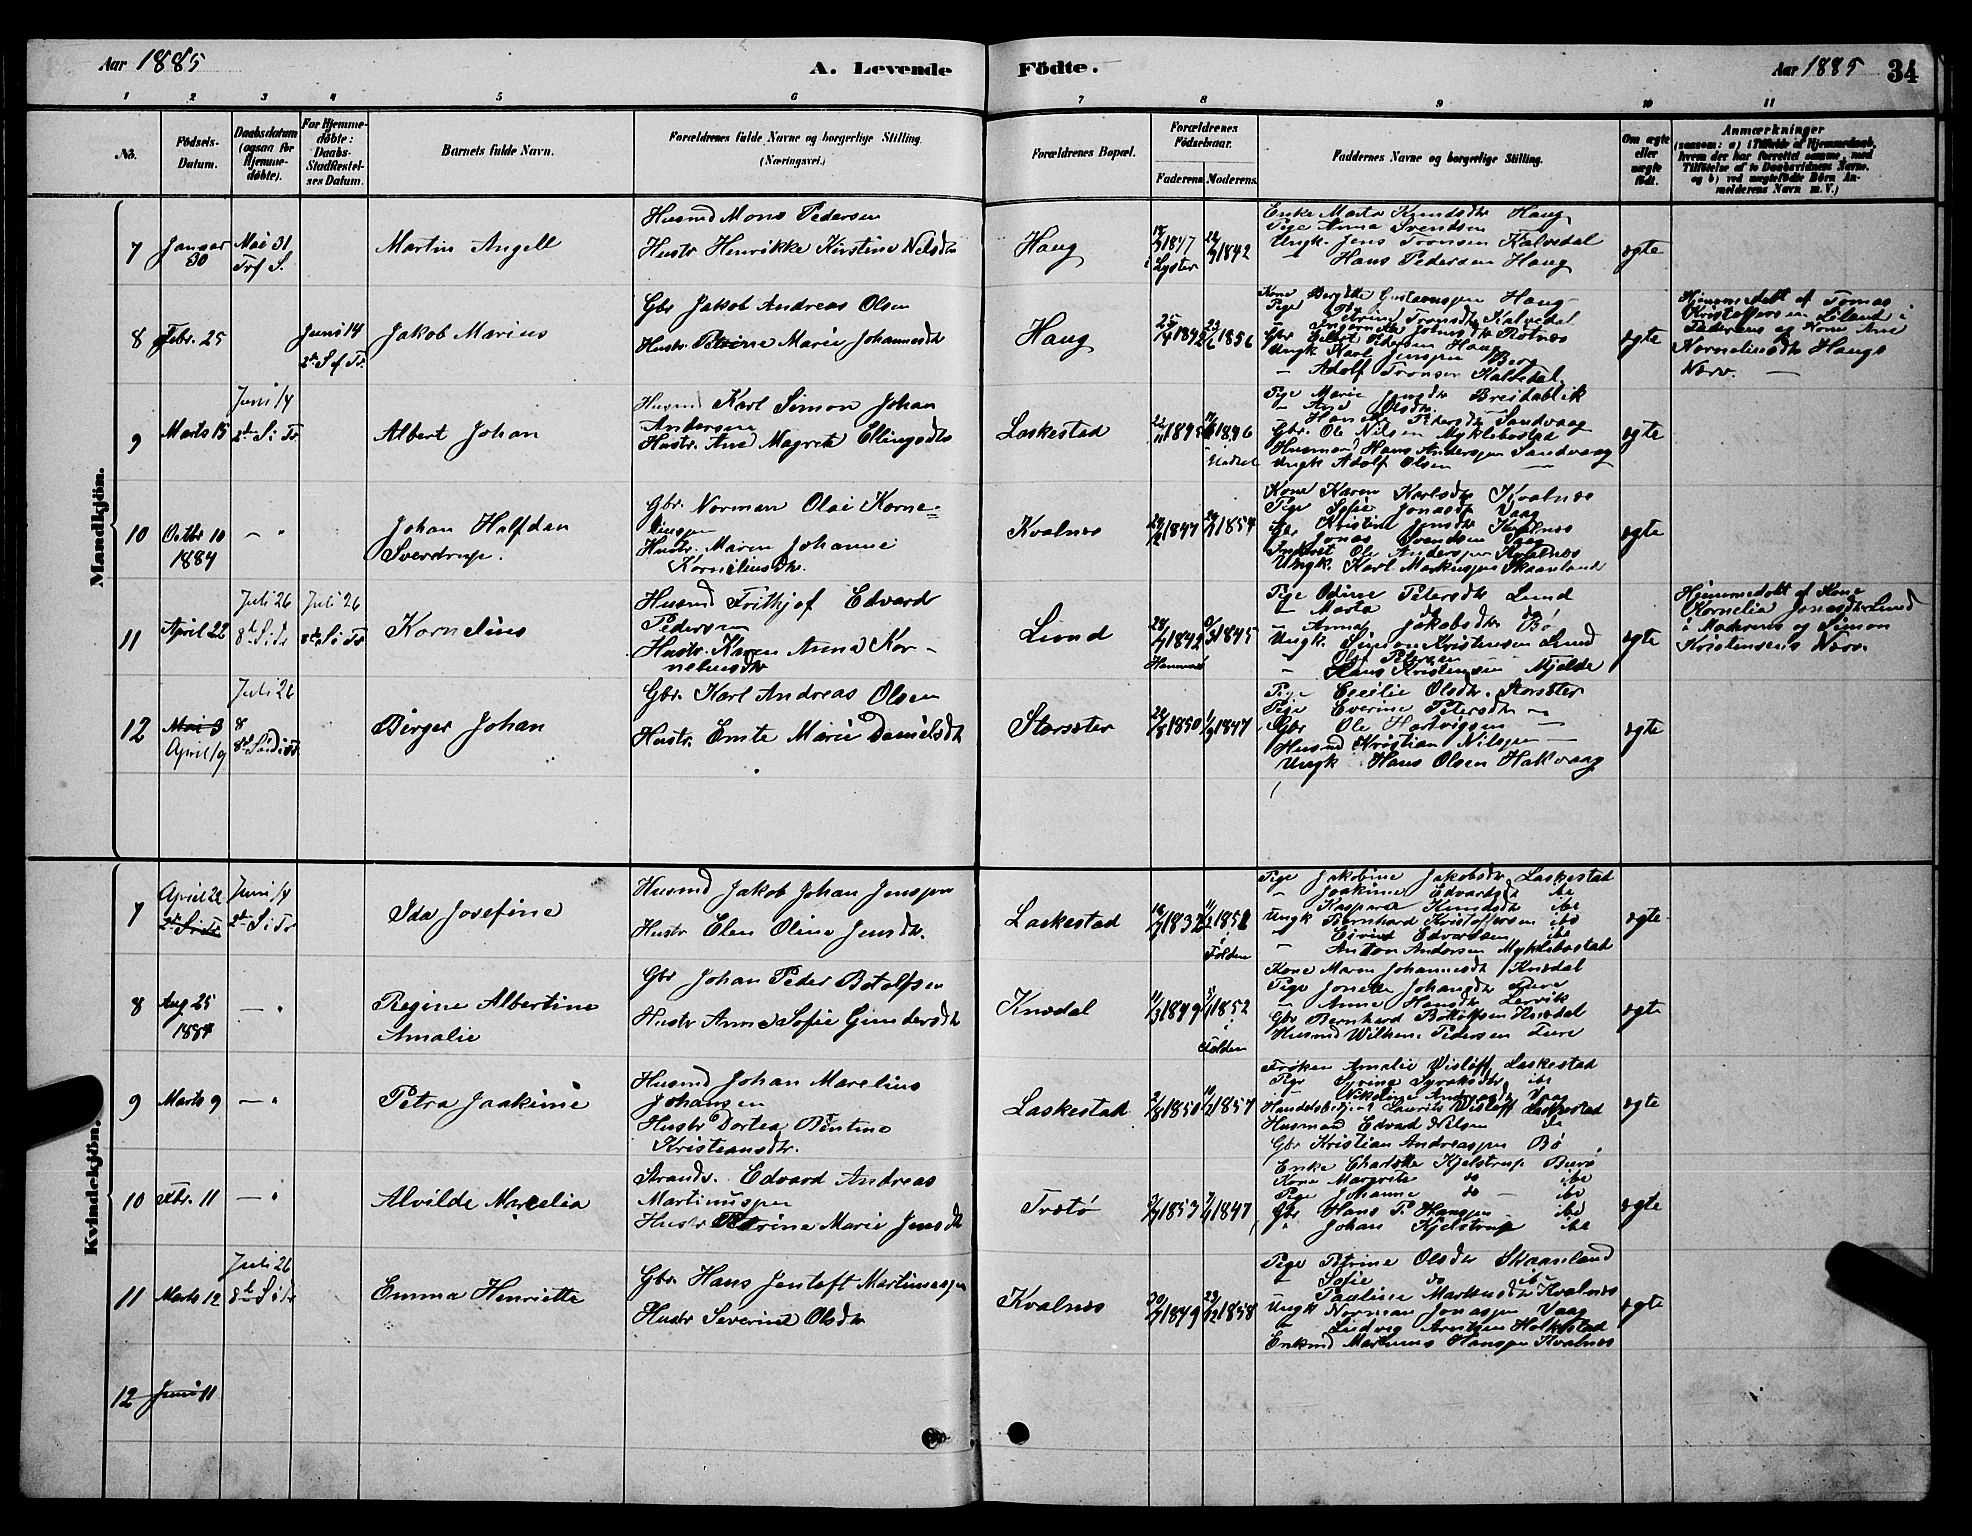 Aar 1885
A. Levende Födte.
Aar 1885 34
1 2 3 4 5 6 7 8 9 10 11
No.
Födsels-
Datum.
Daabsdatum
(ogsaa for
Hjemme-
döbte).
For Hjemme-
döbte:
Daabs-
Stadfæstel-
ses Datum.
Barnets fulde Navn.
Forældrenes fulde Navne og borgerlige Stilling.
(Næringsvei.)
Forældrenes Bopæl.
Forældrenes
Födselsaar.
Faderens Moderens.
Faddernes Navne og borgerlige Stilling.
Om ægte
eller
uægte
födt.
Anmærkninger
(saasom: a) i Tilfælde af Hjemmedaab,
hvem der har forrettet samme, med
Tilföielse af to Daabsvidners Navne.
og b) ved uægtefödte Börn An-
melderens Navn m. V.)
Mandkjön.
7
Januar
30
Mai 31
Trf S.
Martin Angell
Husmd Mons Pedersen
Hustr Henrikke Kirstine Nilsdtr
Haug
1847
i Lyster
1842
Enke Marta Knudsdtr Haug
Pige Anna Svendsen
Ungk. Jens Tronsen Kalvedal
– Hans Pedersen Haug
ægte
8
Febr. 25
Juni 14
2de S f Tr.
Jakob Marius
Gbr Jakob Andreas Olsen
Hustr. Petrine Marie Johannesdtr
Haug
1856
Kone Bergitte Gustavuspen Haug
Pige Petrine Tronsdtr Kalvedal
Ungk Karl Jenspen Berg
– Adolf Tronsen Kalvedal
ægte
Hjemmedøbt af Tomas
Kristoffersen Liland i
Faderens og Kone Ane
Kornelius dtr Haugs
Nærv. –
9
Marts 15
Juni 14
2de S i Tr
Albert Johan
Husmd Karl Simon Johan
Andersen
Hustr. Ane Magreta Ellingsdtr
Laskestad
Pige Marie Jensdtr Breidablik
– Ane Olsdtr
Gbr. Ole Nilsen Myklebostad
Husmand Hans Anderspen Sandvaag
Ungk Adolf Olsen –
ægte
10
Octbr 10
1884
– "
Johan Halfdan
Sverdrup.
Gbr. Norman Olai Korne-
liuspen
Hustr. Maren Johanne
Korneliusdtr.
Kvalnes
1847
1854
Kone Karen Karlsdtr Kvalnes
Pige Sofie Jonasdtr Vaag
– Kristine Jensdtr Kvalnes
Gbr Jonas Svendsen Vaag
Inderst Ole Anderspen Kvalnes
Ungk. Karl Markuspen Skaanland
ægte
11
April 22
Juli 26
8de S i Tr
Juli 26
8de S i Tr
Kornelius
Husmd Frithjof Edvard
Pedersen
Hustr. Karen Anna Kor-
neliusdtr
Lund
1842
Hammerø
1845
Pige Odine Petersdtr Lund
– Marta do
– Anna Jakobsdtr Bø
Ungk. Simon Kristensen Lund
– Ole Petersen
– Hans Kristensen Mjelde
ægte
Hjemmedøbt af Kone
Kornelia Jonasdtr Lund
i Moderens og Simon
Kristensens Nærv.
12
Mai 3
April 19
Juli 26
8
8de S i Tr
Birger Johan
Gbr. Karl Andreas Olsen
Hustr. Emte Marie Danielsdtr
Storsæter
1850
1847
Pige Cecilie Olsdtr. Storsæter
Pige Everine Petersdtr –
Gbr Ole Hartvigsen –
Husmd Kristian Nilspen –
Ungk Hans Olsen Hakvaag
ægte
Kvindekjön.
7
April 22
2de S i Tr
Juni 14
2de S i Tr
Ida Josefine
Husmd Jakob Johan Jenspen
Hustr Elen Oline Jensdtr.
Laskestad
1832
1851
i
Folden
Pige Jakobine Jakobsdtr Laskestad
– Joakime Edvardsdtr ibe
– Kaspara Knudsdtr ibe
Ungk Bernhard Kristoffersen ibe
– Eivind Edvardsen ibe
– Anton Andersen Myklebostad
ægte
8
Aug 25
1884
– "
Regine Albertine
Amalie
Gbr Johan Peder Botolfsen
Hustr Anne Sofie Gundersdtr
Knædal
1849
1852
i
Folden
Kone Maren Johannesdtr Knædal
Pige Jonette Johansdtr Ture
– Anne Hansdtr Lervik
Gbr Bernhard Bottolfsen Knædal
Husmd Wilhem. Pedersen Ture
ægte
9
Marts 9
– "
Petra Joakime
Husmd Johan Marelius
Johansen
Hustr Dortea Bentine
Kristiansdtr.
Laskestad
1850
1857
Frøken Amalie Wisløff Laskestad
Pige Syrine Syraksdtr ibe
– Nikoline Andreasdtr Vaag
Handelsbetjent Laurits Wisløff Laskestad
Husmand Edvard Nilsen do
Gbr Kristian Andreaspen Bø
ægte
10
Fbr. 11
– "
Alvilde Marcelia
Strands. Edvard Andreas
Martinuspen
Hustr Petrine Marie Jensdtr
Trætø
1853
1847
Enke Charlotte Kjelstrup Burø
Kone Margrete do ibe
Pige Johanne do – ibe
Gbr Hans P. Hanspen ibe
" Johan Kjelstrup ibe
ægte
11
Marts 12
Juli 26
8de S i Tr
Emma Henriette
Gbr. Hans Jentoft Martinuspen
Hustr Severine Olsdtr
Kvalnes
1849
1858
Pige Petrine Olsdtr Skaanland
– Sofie do ibe
– Pauline Markusdtr Kvalnes
Ungk Norman Jonaspen Vaag
– Ludvig Arntsen Holkestad
Enkemd Martinus Hanspen Kvalnes
ægte
12
Juni 11